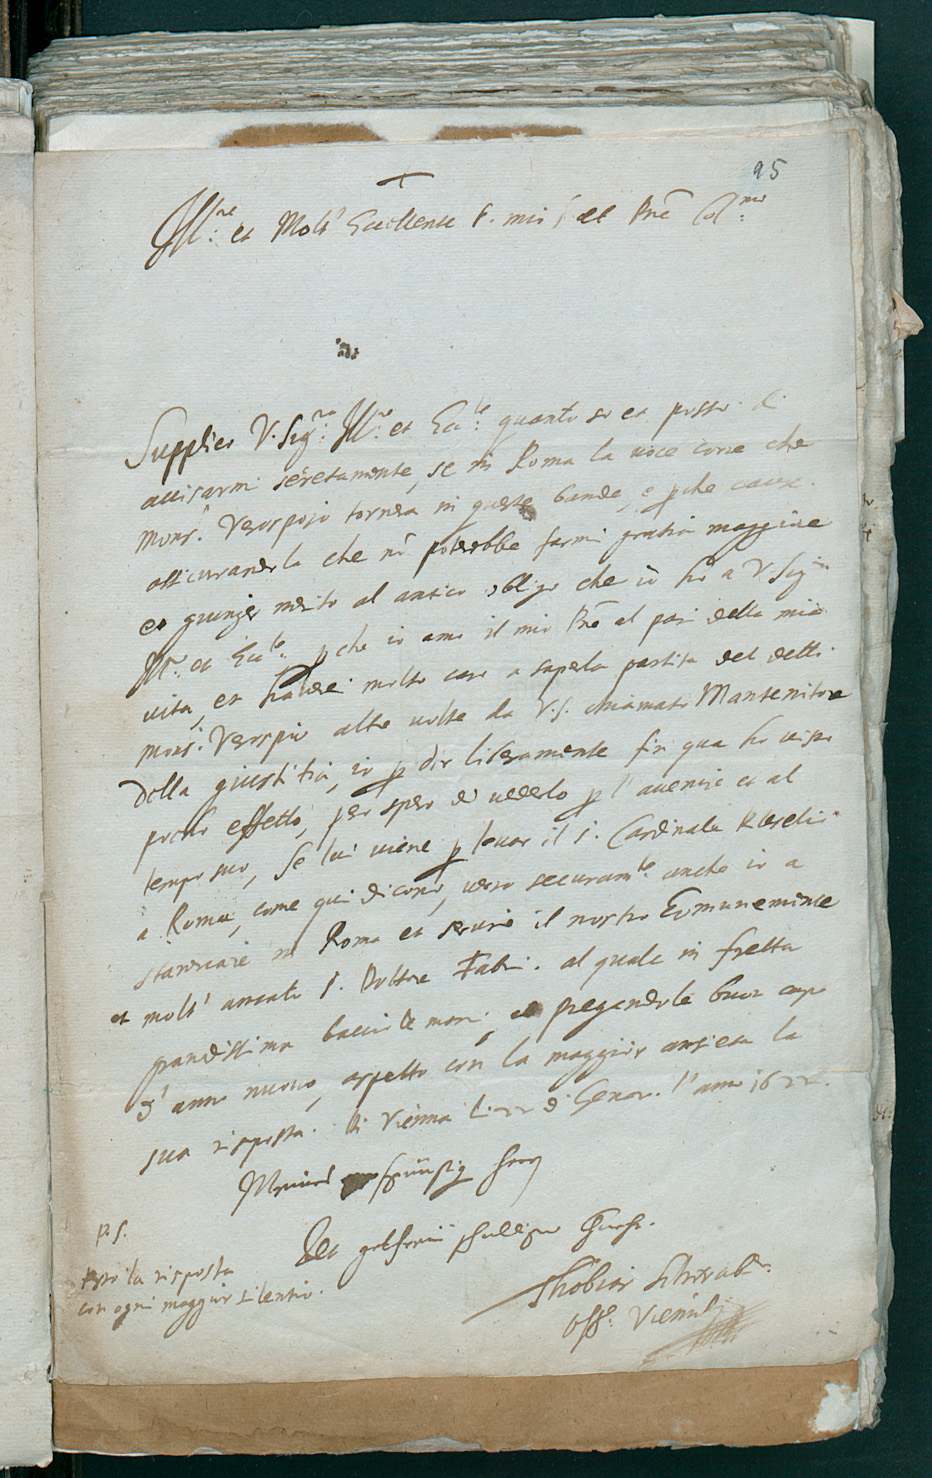 95
Ill:re et Molt' Eccellente S. mio et Pre Col:mo
Supplico V. Sig:ria Ill:re et Ecc:te quanto so et posso di
avisarmi secretamente, se in Roma la voce corre che
Mons:r Verospio tornera in queste bande, e p che causa.
assicurandola che nõ potrebbe farmi gratia maggiore
et giunger merito al antico obligo che io ho a V. Sig:ria
Ill:re et Ecc:te p che io amo il mio Pre al pari della mia
vita, et haverei molto caro a saper la partita del detto
Mons:r Verospio altre volte da V.S. chiamato Mantenitore
della giustitia, io p dir liberamente fin qua ho visto
pocho effetto, pero spero di vederlo p l'avenire et al
tempo suo, Se lui viene p levar il S. Cardinale
a Roma, come qui dicono, verro securam:te anche io a
in Roma et servire il nostro
et molt' amato S. Dottore Fabri. al quale in fretta
grandissima baccio le mani, et pregandole buon capo
d'anno nuovo, aspetto con la maggior ansieta la
sua risposta. Di Vienna li 22 di Genar. l'anno 1622.
P.S.
la risposta
con ogni maggior silentio.
Thobias